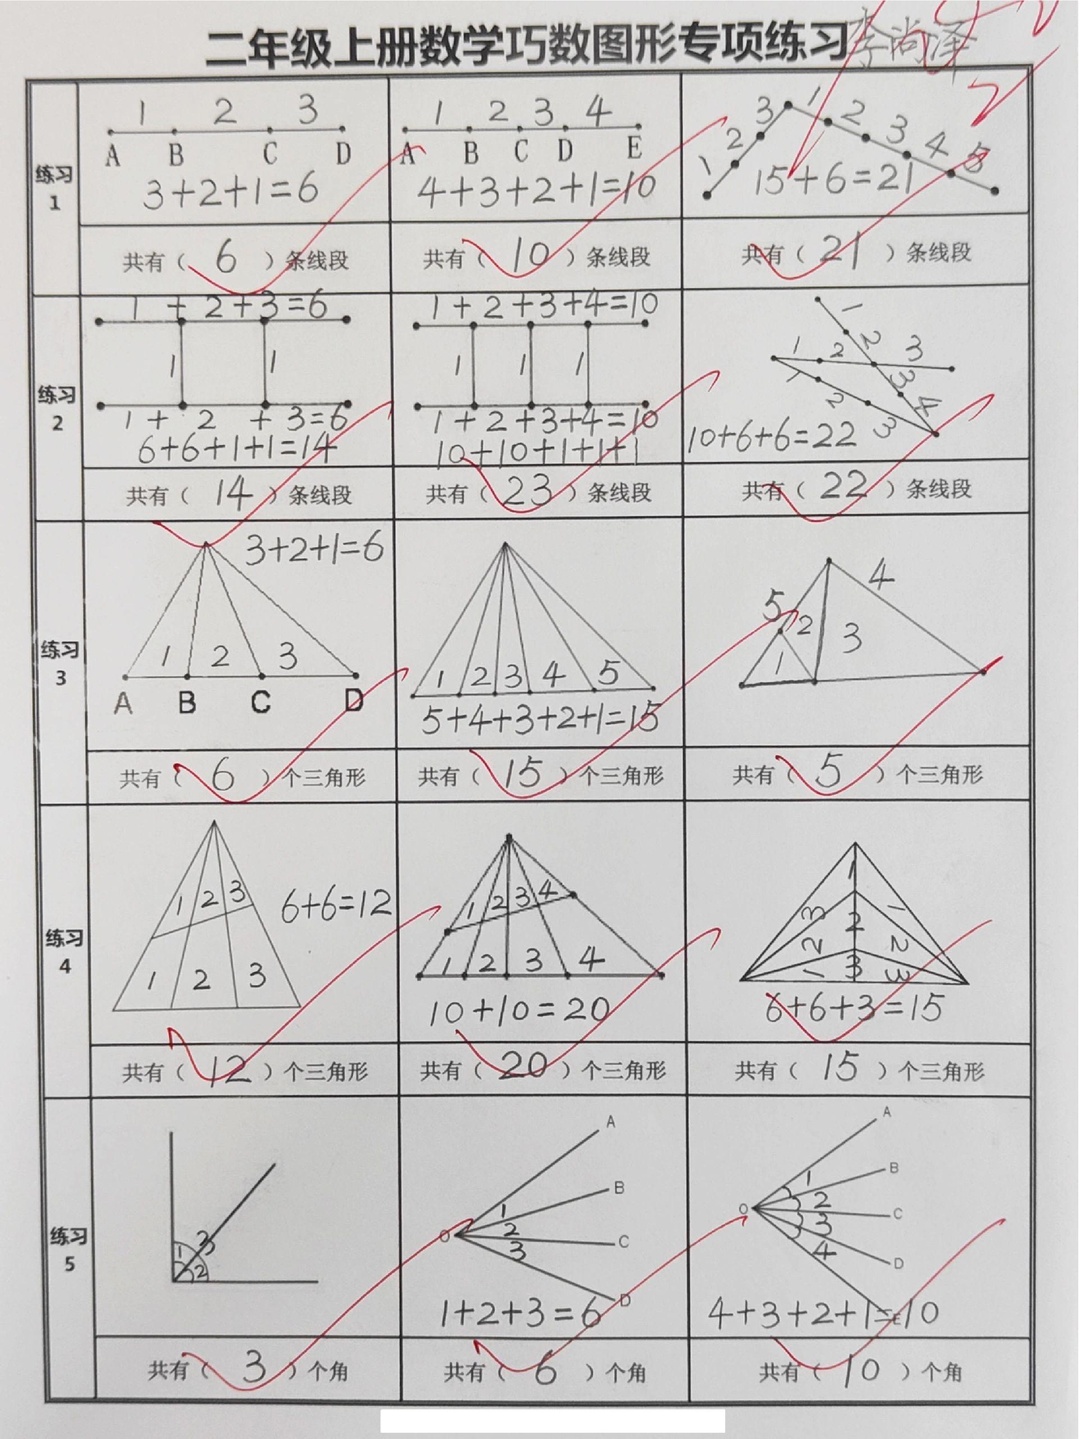 二年级上册数学巧数图形专项练习 李尚泽
练习1
1 2 3
A B C D
3+2+1=6
共有（ 6 ）条线段
1 2 3 4
A B C D E
4+3+2+1=10
共有（ 10 ）条线段
1 2 3 1 2 3 4 5
15+6=21
共有（ 21 ）条线段
练习2
1 + 2+3=6
1 1
1 + 2 + 3=6
6+6+1+1=14
共有（ 14 ）条线段
1 + 2 +3+4=10
1 1 1
1 + 2 +3+4=10
10+10+1+1+1
共有（ 23 ）条线段
1 2 3 4
1 2 3
1 2 3
10+6+6=22
共有（ 22 ）条线段
练习3
3+2+1=6
1 2 3
A B C D
共有（ 6 ）个三角形
1 2 3 4 5
5+4+3+2+1=15
共有（ 15 ）个三角形
4
5 2 3
1
共有（ 5 ）个三角形
练习4
1 2 3
6+6=12
1 2 3
共有（ 12 ）个三角形
1 2 3 4
1 2 3 4
10+10=20
共有（ 20 ）个三角形
1
3 2 1
2 2
1 3 3
6+6+3=15
共有（ 15 ）个三角形
练习5
1 3
2
共有（ 3 ）个角
A
B
1
O 2 C
3
D
1+2+3=6
共有（ 6 ）个角
A
1 B
O 2 C
3
4 D
E
4+3+2+1=10
共有（ 10 ）个角